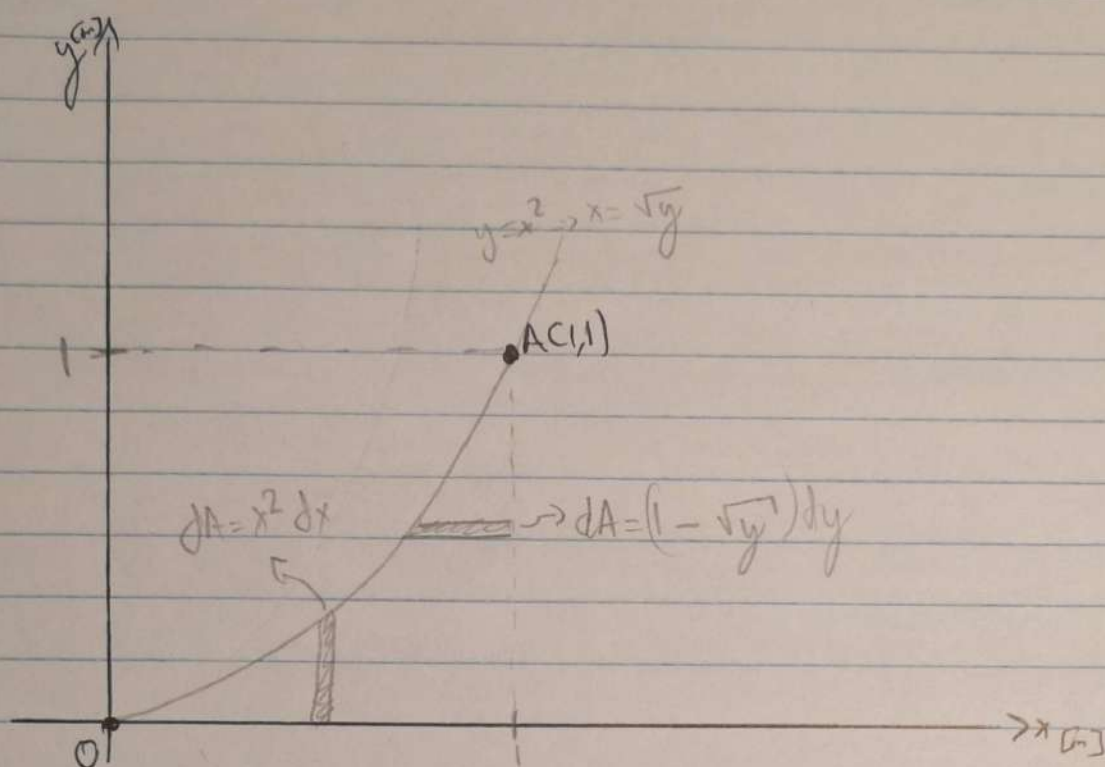 y[m]
y=x² → x=√y
1
A(1,1)
dA=x² dx
→ dA=(1-√y)dy
O
x [m]